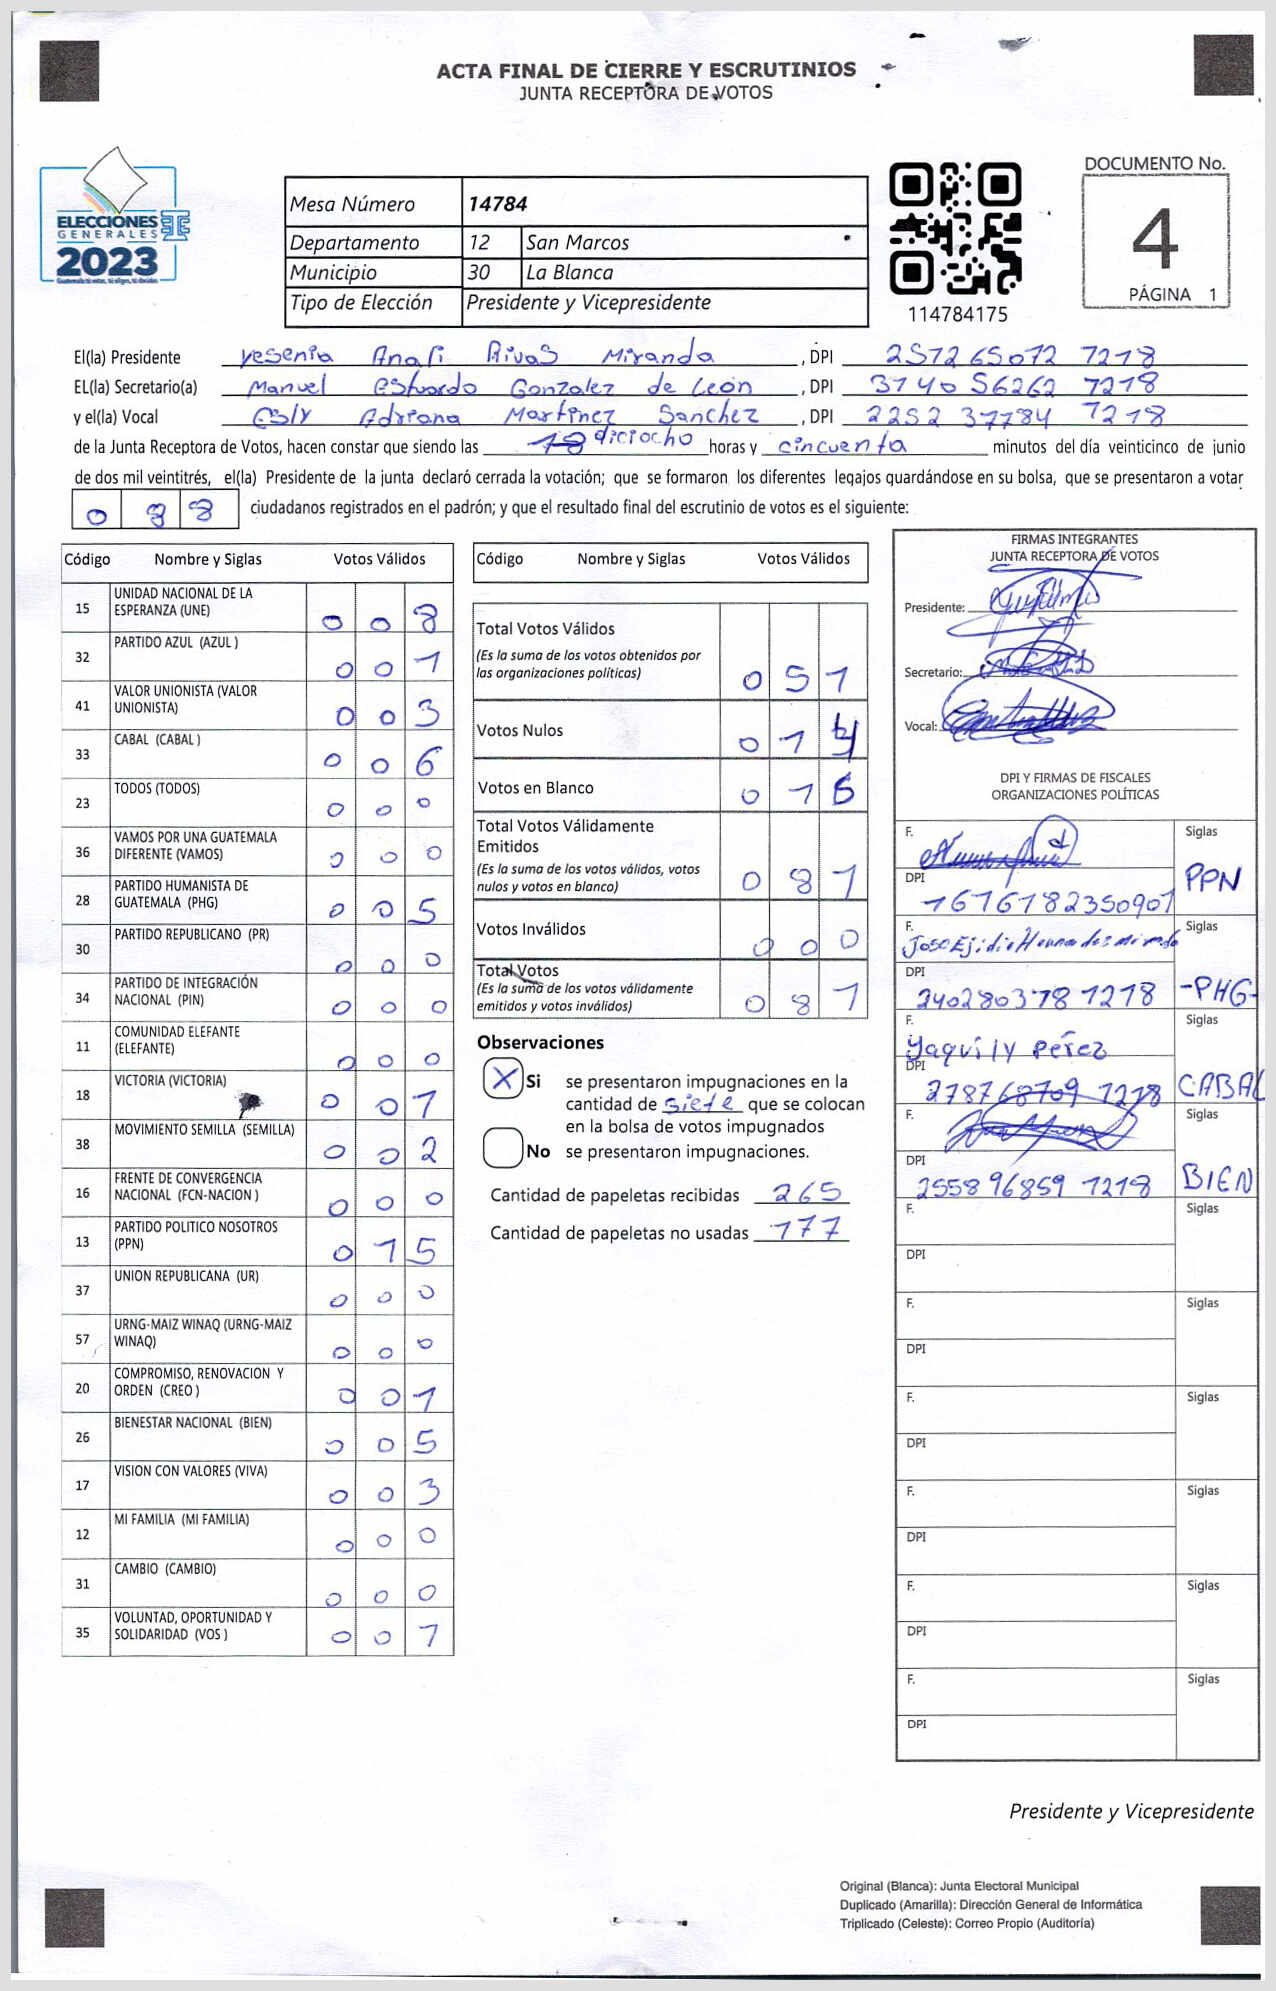 ACTA FINAL DE CIERRE Y ESCRUTINIOS
JUNTA RECEPTORA DE VOTOS
ELECCIONES
GENERALES
2023
Mesa Número 14784
Departamento 12 San Marcos
Municipio 30 La Blanca
Tipo de Elección Presidente y Vicepresidente
114784175
DOCUMENTO No.
4
PÁGINA 1
El(la) Presidente Yesenia Anafi Rivas Miranda , DPI 2572 65072 7218
EL(la) Secretario(a) Manuel Estuardo Gonzalez de León , DPI 3140 56262 7218
y el(la) Vocal Esly Adriana Martinez Sanchez , DPI 2252 37784 7218
de la Junta Receptora de Votos, hacen constar que siendo las 18 diciocho horas y cincuenta minutos del día veinticinco de junio
de dos mil veintitrés, el(la) Presidente de la junta declaró cerrada la votación; que se formaron los diferentes legajos guardándose en su bolsa, que se presentaron a votar
0 8 8 ciudadanos registrados en el padrón; y que el resultado final del escrutinio de votos es el siguiente:
Código Nombre y Siglas Votos Válidos
15 UNIDAD NACIONAL DE LA ESPERANZA (UNE) 0 0 8
32 PARTIDO AZUL (AZUL ) 0 0 1
41 VALOR UNIONISTA (VALOR UNIONISTA) 0 0 3
33 CABAL (CABAL ) 0 0 6
23 TODOS (TODOS) 0 0 0
36 VAMOS POR UNA GUATEMALA DIFERENTE (VAMOS) 0 0 0
28 PARTIDO HUMANISTA DE GUATEMALA (PHG) 0 0 5
30 PARTIDO REPUBLICANO (PR) 0 0 0
34 PARTIDO DE INTEGRACIÓN NACIONAL (PIN) 0 0 0
11 COMUNIDAD ELEFANTE (ELEFANTE) 0 0 0
18 VICTORIA (VICTORIA) 0 0 1
38 MOVIMIENTO SEMILLA (SEMILLA) 0 0 2
16 FRENTE DE CONVERGENCIA NACIONAL (FCN-NACION ) 0 0 0
13 PARTIDO POLITICO NOSOTROS (PPN) 0 1 5
37 UNION REPUBLICANA (UR) 0 0 0
57 URNG-MAIZ WINAQ (URNG-MAIZ WINAQ) 0 0 0
20 COMPROMISO, RENOVACION Y ORDEN (CREO ) 0 0 1
26 BIENESTAR NACIONAL (BIEN) 0 0 5
17 VISION CON VALORES (VIVA) 0 0 3
12 MI FAMILIA (MI FAMILIA) 0 0 0
31 CAMBIO (CAMBIO) 0 0 0
35 VOLUNTAD, OPORTUNIDAD Y SOLIDARIDAD (VOS ) 0 0 1
Código Nombre y Siglas Votos Válidos
Total Votos Válidos 0 5 1
(Es la suma de los votos obtenidos por
las organizaciones políticas)
Votos Nulos 0 1 4
Votos en Blanco 0 1 6
Total Votos Válidamente
Emitidos 0 8 1
(Es la suma de los votos válidos, votos
nulos y votos en blanco)
Votos Inválidos 0 0 0
Total Votos 0 8 1
(Es la suma de los votos válidamente
emitidos y votos inválidos)
Observaciones
X Si se presentaron impugnaciones en la
cantidad de siete que se colocan
en la bolsa de votos impugnados
No se presentaron impugnaciones.
Cantidad de papeletas recibidas 265
Cantidad de papeletas no usadas 177
FIRMAS INTEGRANTES
JUNTA RECEPTORA DE VOTOS
Presidente:
Secretario:
Vocal:
DPI Y FIRMAS DE FISCALES
ORGANIZACIONES POLÍTICAS
F. Siglas
DPI 1616182350901 PPN
F. Jose Ejidio Siglas
DPI 2402803781218 -PHG-
F. Yaquily Pérez Siglas
DPI 278768709 1218 CABAL
F. Siglas
DPI 2558 96859 1218 BIEN
F. Siglas
DPI
F. Siglas
DPI
F. Siglas
DPI
F. Siglas
DPI
F. Siglas
DPI
F. Siglas
DPI
Presidente y Vicepresidente
Original (Blanca): Junta Electoral Municipal
Duplicado (Amarilla): Dirección General de Informática
Triplicado (Celeste): Correo Propio (Auditoría)